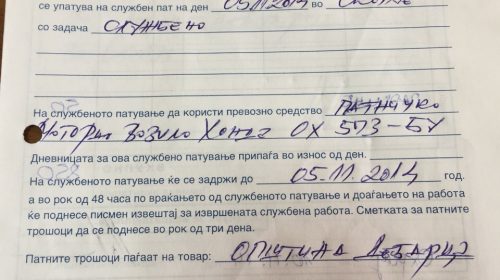 се упатува на службен пат на ден 05.11.2014 во
со задача службено
На службеното патување да користи превозно средство патничко
моторно возило Хонда ОХ 573-БУ
Дневницата за ова службено патување припаѓа во износ од ден.
На службеното патување ќе се задржи до 05.11.2014 год.
а во рок од 48 часа по враќањето од службеното патување и доаѓањето на работа
ќе поднесе писмен извештај за извршената службена работа. Сметката за патните
трошоци да се поднесе во рок од три дена.
Патните трошоци паѓаат на товар: општина Дебарца